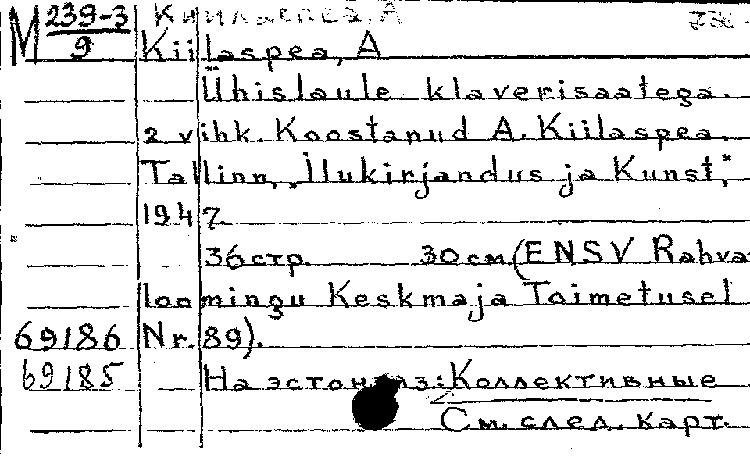 М 239-3 Кийласпеа, А
9 Kiilaspea, A
Ühislaule klaverisaatega.
2 vihk. Koostanud A. Kiilaspea.
Tallinn, „Ilukirjandus ja Kunst,"
1947.
36 стр. 30 см. (ENSV Rahva-
loomingu Keskmaja Toimetusel
69186 Nr. 89).
69185 На эстон. яз: Коллективные
См. след. карт.